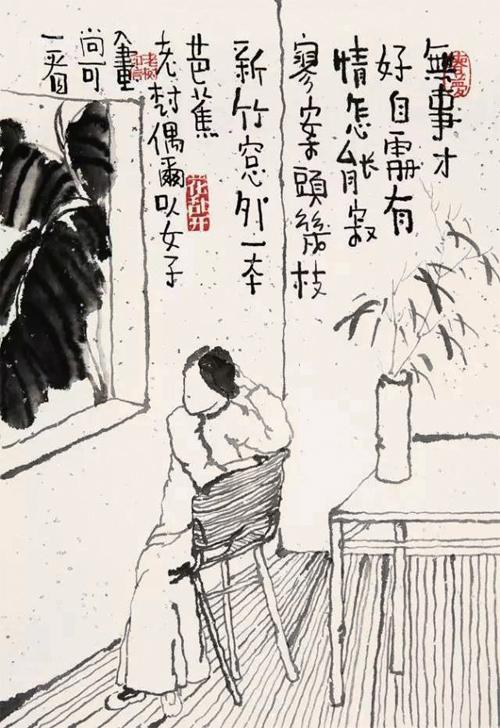 無事才
好自處有
情怎能寂
寥案頭幾枝
新竹窓外一本
芭蕉
花乱开
老树偶爾以女子
入畫
尚可
一看